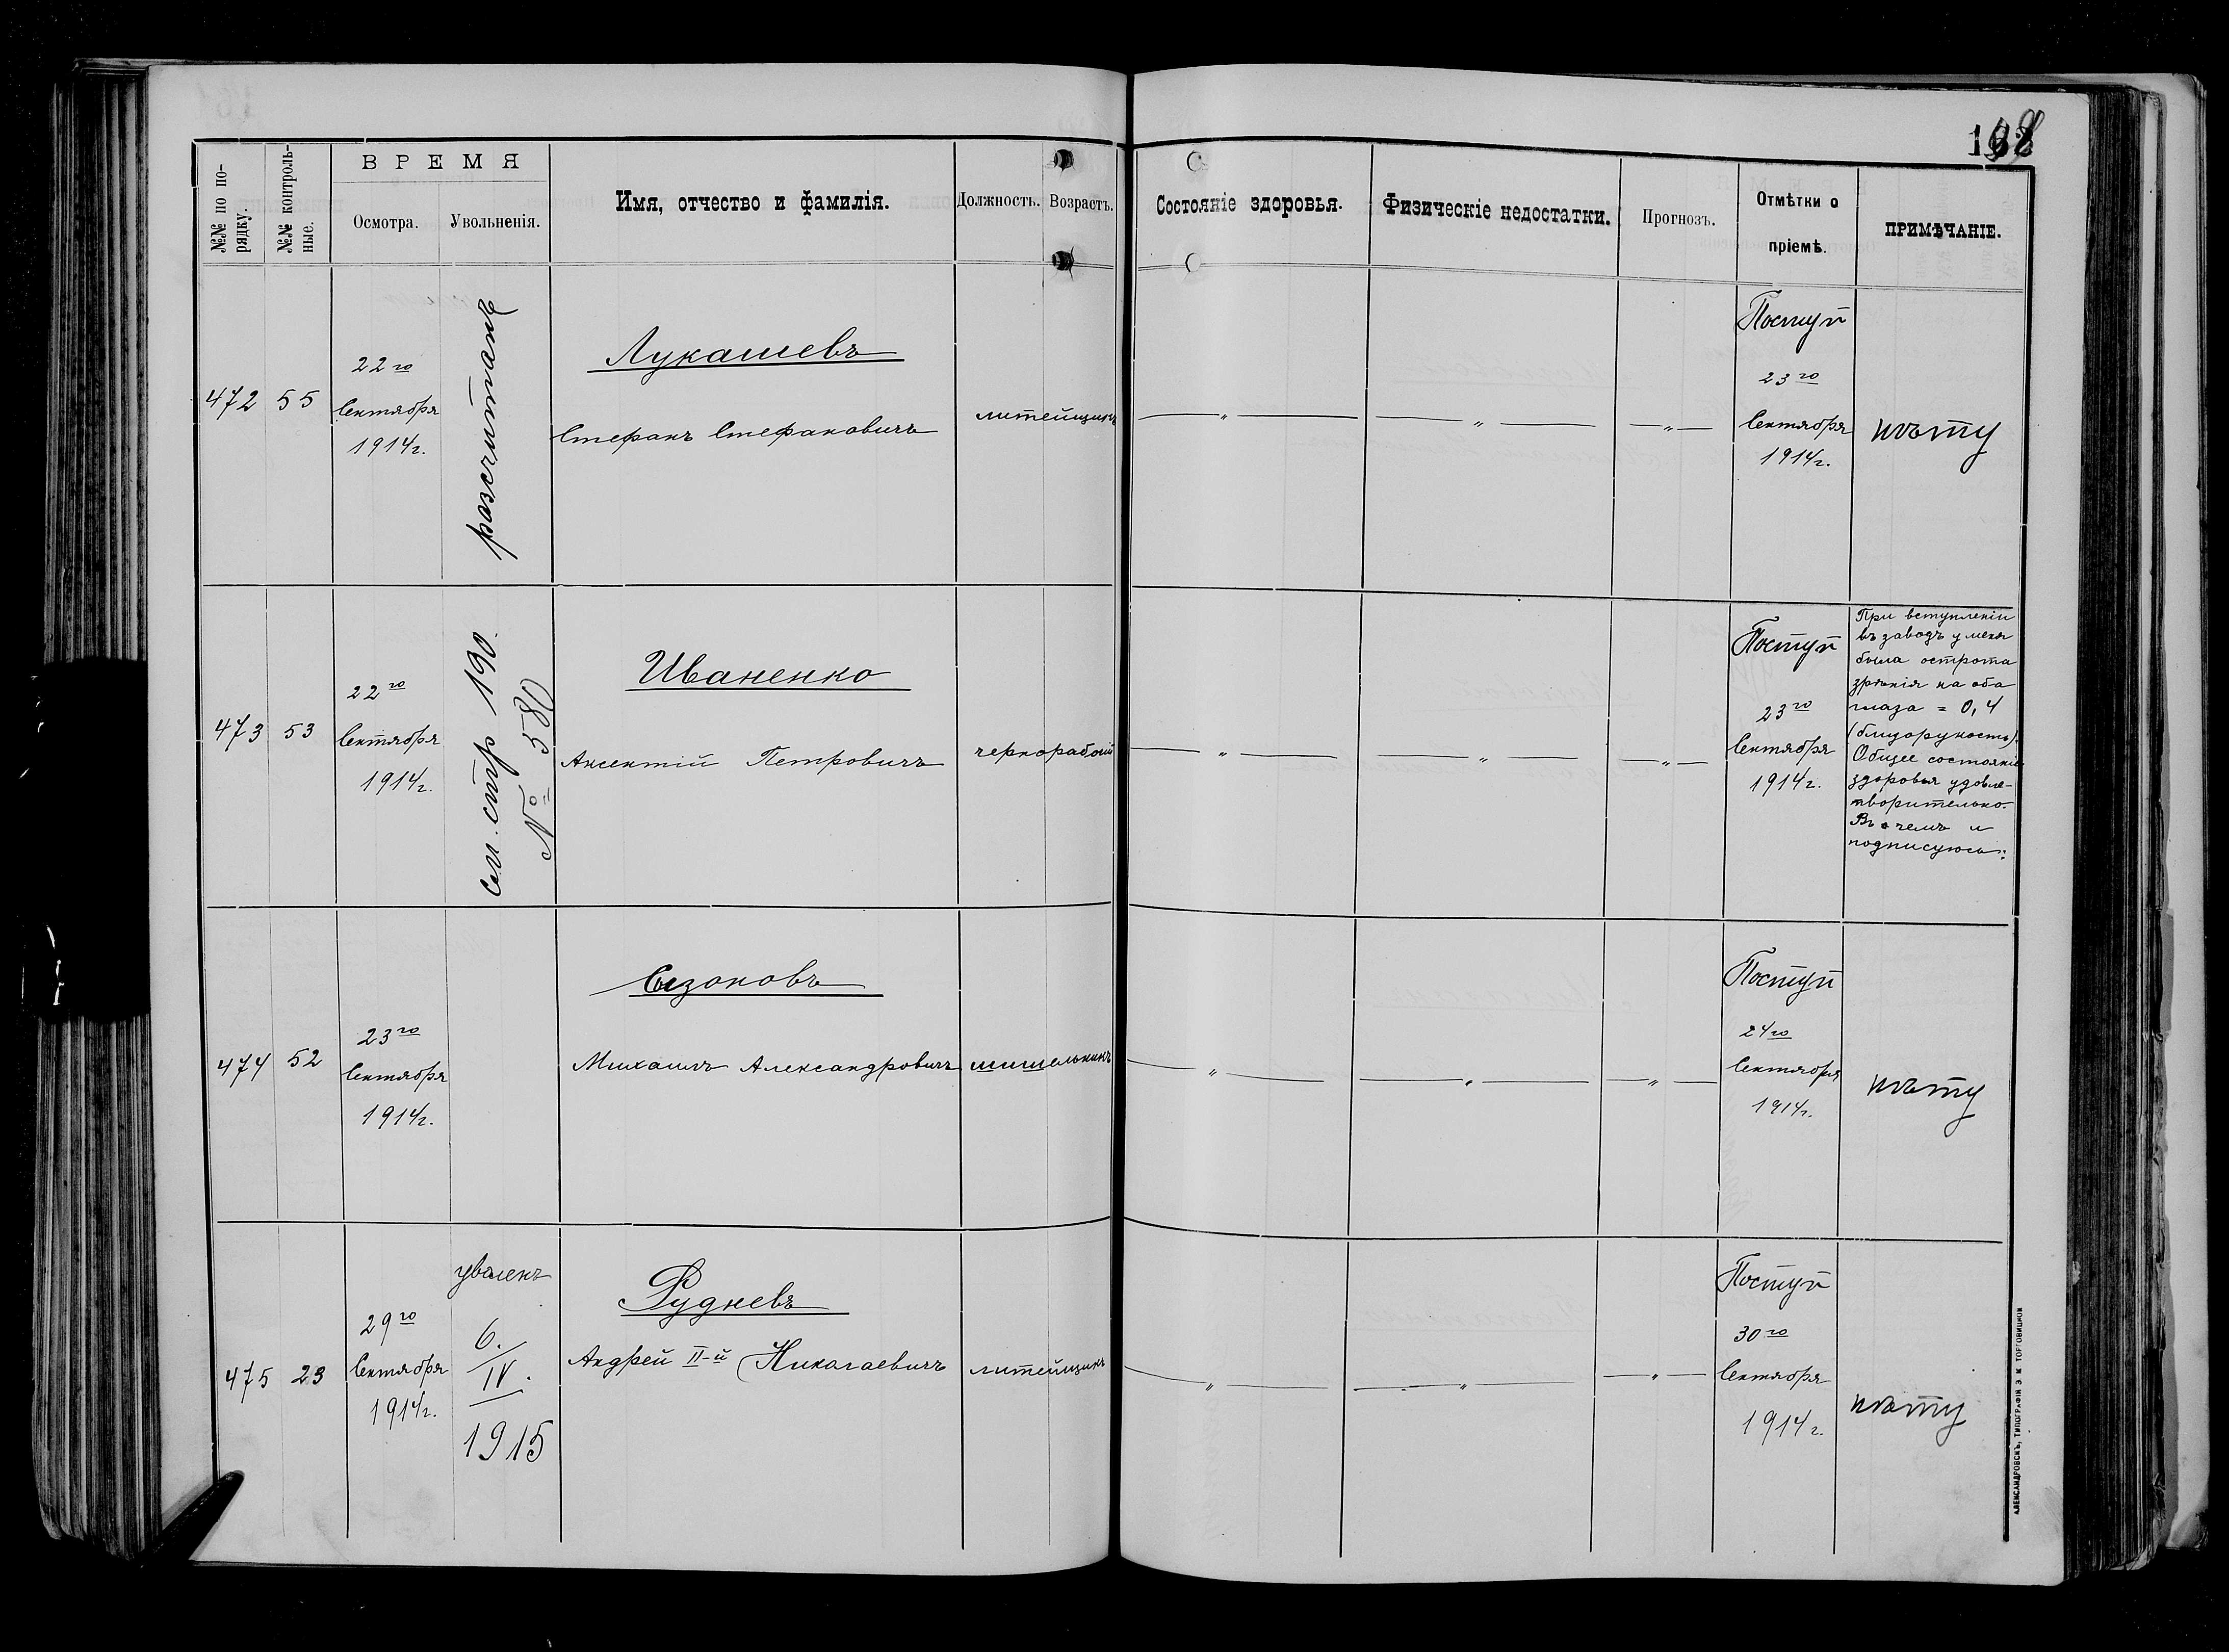 168
№№ по по-
рядку.
№№ контроль-
ные.
ВРЕМЯ
Осмотра.
Увольненія.
Имя, отчество и фамилія.
Должность.
Возрастъ.
Состояніе здоровья.
Физическіе недостатки.
Прогнозъ.
Отмѣтки о
пріемѣ.
ПРИМѢЧАНІЕ.
472
55
22го
Сентября
1914г.
разсчитанъ
Лукашевъ
Стефанъ Стефановичъ
литейщикъ
— „ —
— „ —
— „ —
Поступ
23го
Сентября
1914г.
473
53
22го
Сентября
1914г.
см. стр 190.
№ 580
Иваненко
Аксентій Петровичъ
чернорабочій
— „ —
— „ —
— „ —
Поступ
23го
Сентября
1914г.
При вступленіи
въ заводъ у меня
была острота
зрѣнія на оба
глаза = 0,4
(близорукость).
Общее состояніе
здоровья удовле-
творительно.
Въ чемъ и
подписуюсь:
474
52
23го
Сентября
1914г.
Сазоновъ
Михаилъ Александровичъ
шишельникъ
— „ —
— „ —
— „ —
Поступ
24го
Сентября
1914г.
475
23
29го
Сентября
1914г.
уволенъ
6.
IV.
1915
Рудневъ
Андрей II-й Николаевичъ
литейщикъ
— „ —
— „ —
— „ —
Поступ
30го
Сентября
1914г.
АЛЕКСАНДРОВСКЪ, ТИПОГРАФІЯ Э. М. ТОРГОВИЦКОЙ